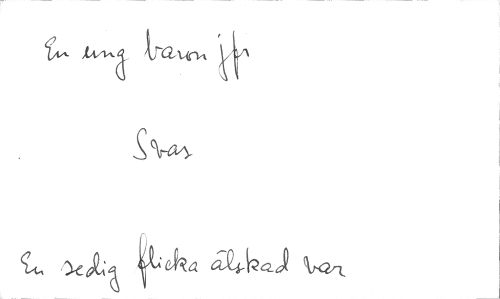 En ung baron jfr
Svar
En sedig flicka älskad var